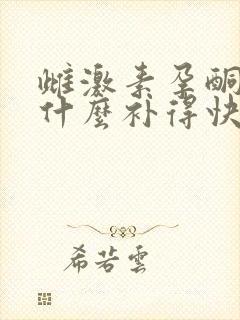 雌激素孕酮
什麼补得快
希若雲